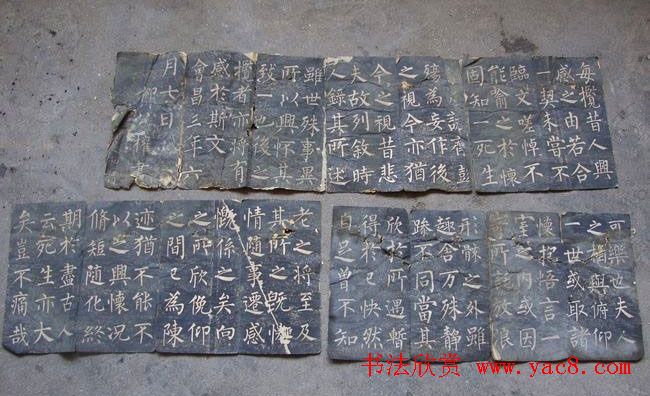 每攬昔人興
感之由若合
一契未嘗不
臨文嗟悼不
能喻之於懷
固知一死生
誕齊彭
殤為妄作後
之視今亦猶
今之視昔悲
夫故列敘時
人錄其所述
雖世殊事異
所以興懷其
致一也後之
攬者亦將有
感於斯文
會昌三年六
月七日
柳公權書
可樂也夫人
之相與俯仰
一世或取諸
懷抱悟言一
室之内或因
寄所託放浪
形骸之外雖
趣合万殊靜
躁不同當其
欣於所遇暫
得於己快然
自足曾不知
老之將至及
其所之既惓
情隨事遷感
慨係之矣向
之所欣俛仰
之間已為陳
迹猶不能不
以之興懷況
脩短隨化終
期於盡古人
云死生亦大
矣豈不痛哉
书法欣赏 www.yac8.com